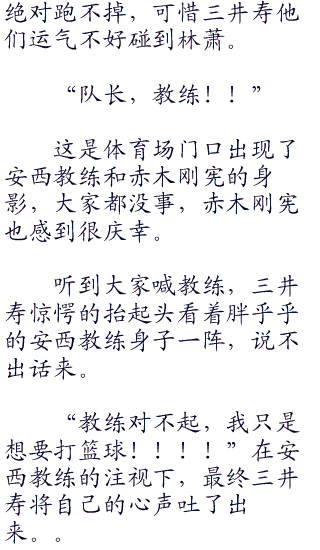 绝对跑不掉，可惜三井寿他
们运气不好碰到林萧。
“队长，教练！！”
这是体育场门口出现了
安西教练和赤木刚宪的身
影，大家都没事，赤木刚宪
也感到很庆幸。
听到大家喊教练，三井
寿惊愕的抬起头看着胖乎乎
的安西教练身子一阵，说不
出话来。
“教练对不起，我只是
想要打篮球！！！！”在安
西教练的注视下，最终三井
寿将自己的心声吐了出
来。。